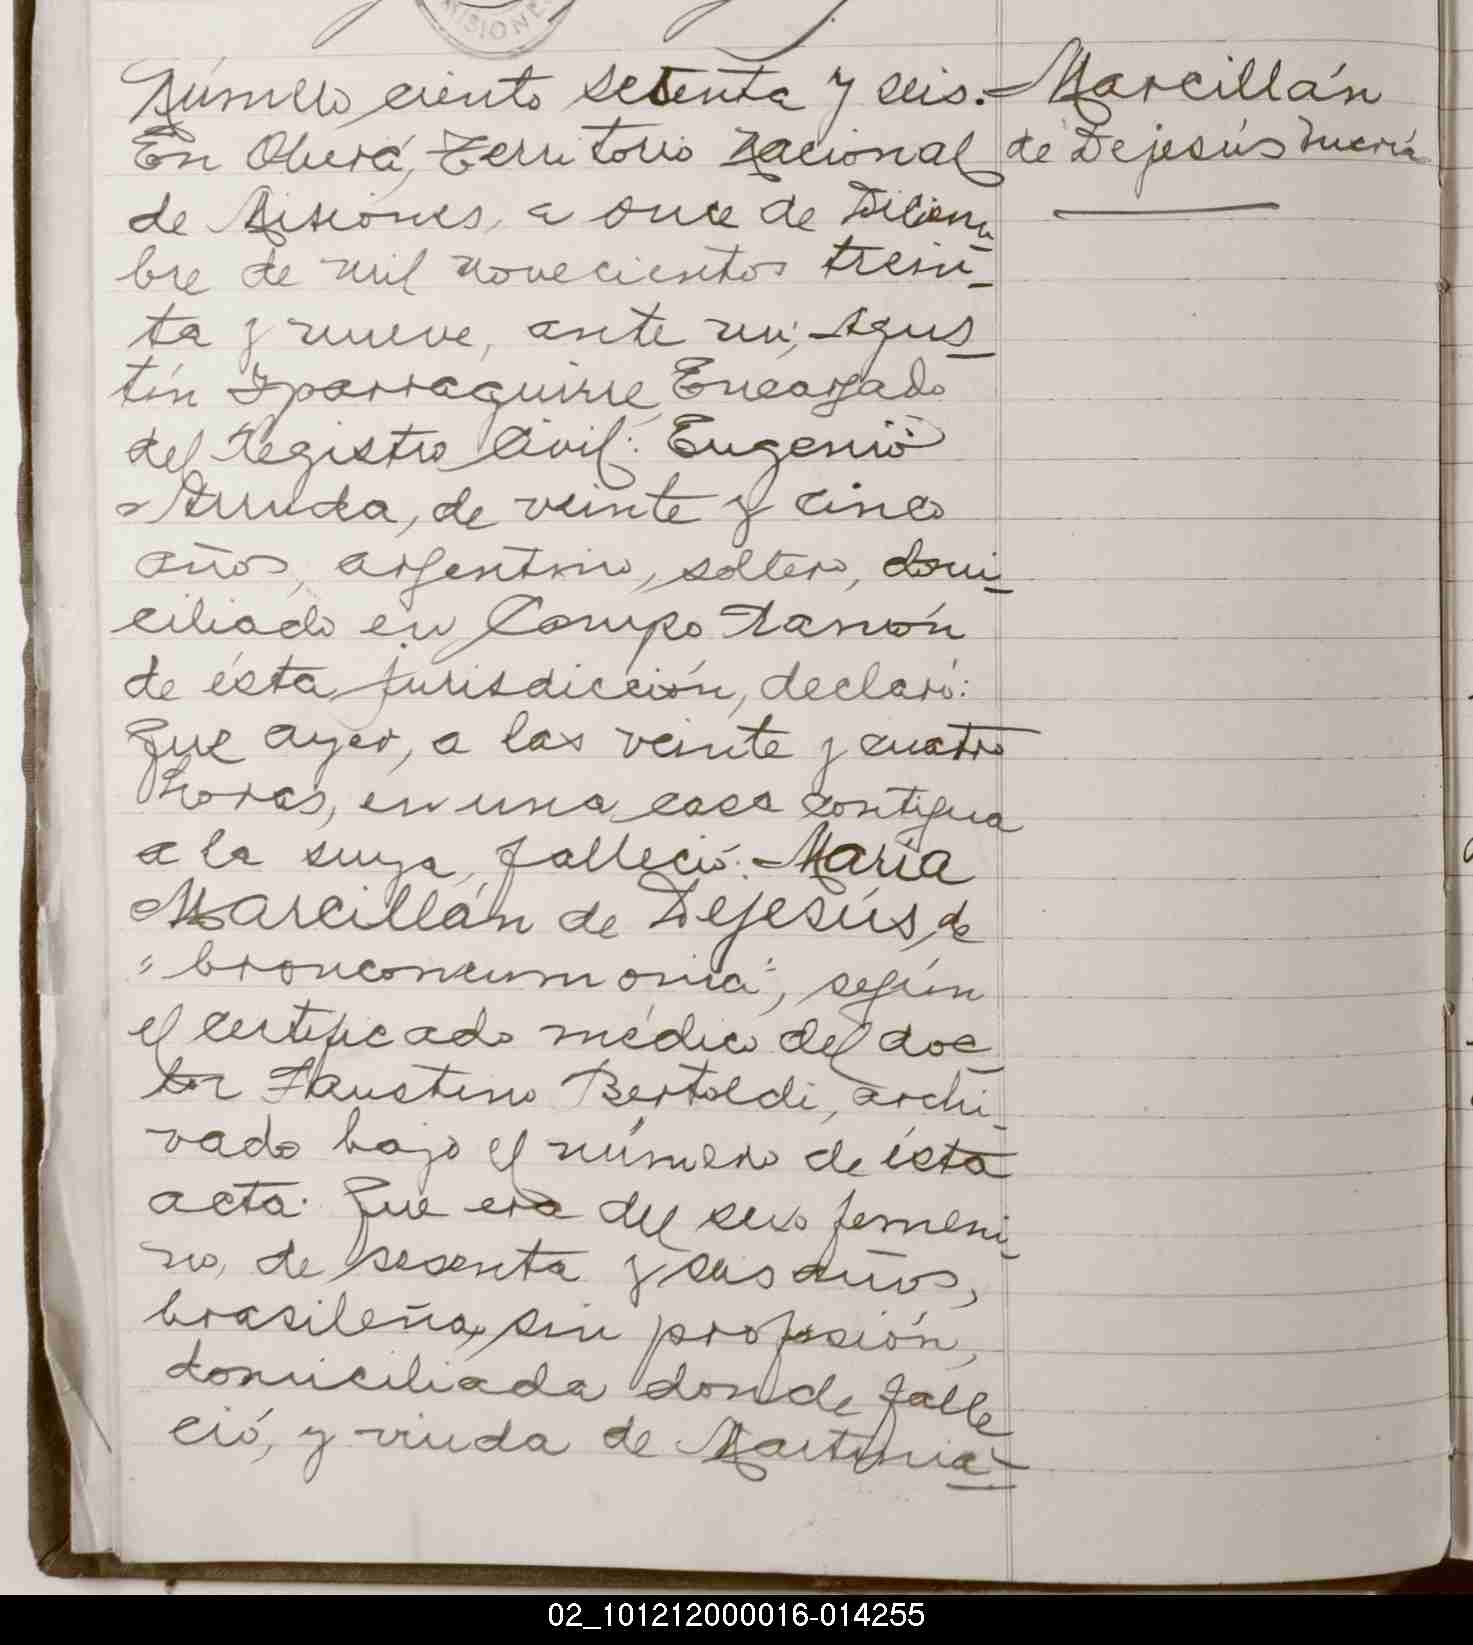 MISIONES
Número ciento setenta y seis.
En Oberá, Territorio Nacional
de Misiones, a once de Diciem
bre de mil novecientos trein-
ta y nueve, ante mi, Agus-
tín Iparraguirre, Encargado
del Registro Civil: Eugenio
Arruda, de veinte y cinco
años, argentino, soltero, domi-
ciliado en Campo Ramón
de ésta jurisdicción, declaró:
Que ayer, a las veinte y cuatro
horas, en una casa contigua
a la suya, falleció: María
Marcillán de Dejesús, de
"bronconeumonia", según
el certificado médico del doc-
tor Faustino Bertoldi, archi-
vado bajo el número de ésta
acta. Que era del sexo femeni-
no, de sesenta y seis años,
brasileña, sin profesión,
domiciliada donde falle
ció, y viuda de Martinia-
Marcillán
de Dejesús María
02_101212000016-014255